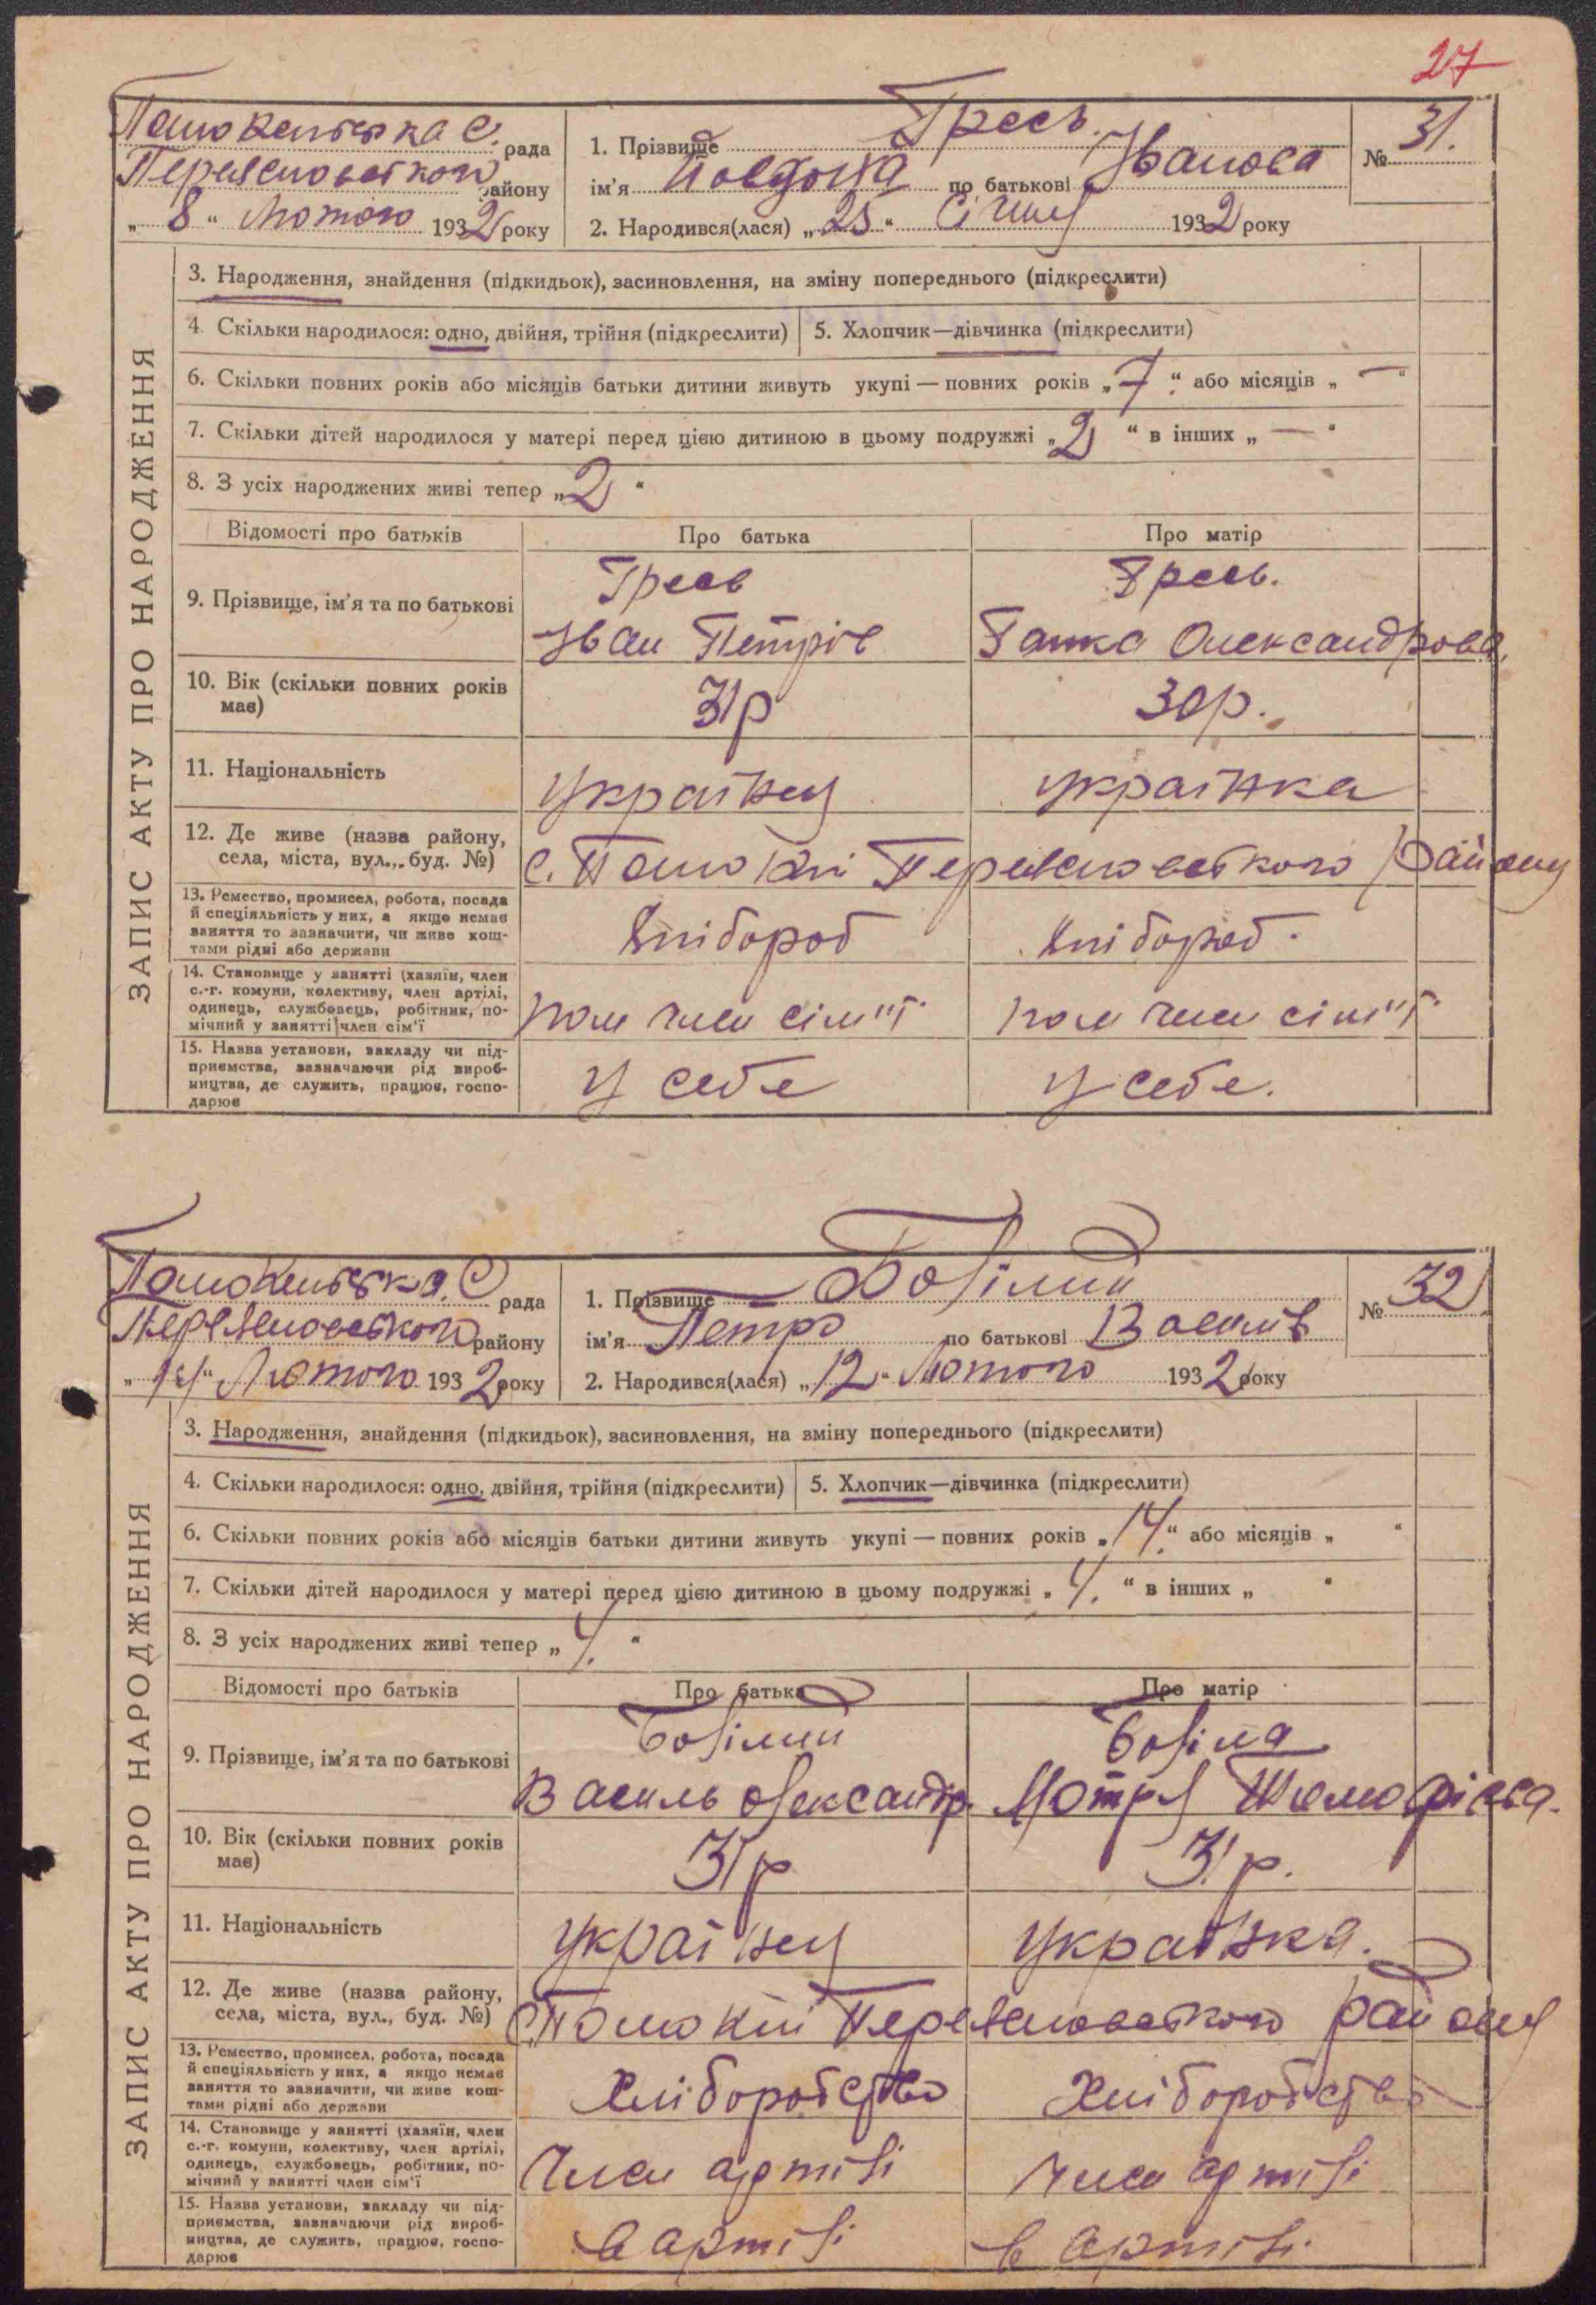 27
Помокельська С. рада
Переяславського району
„ 8 “ Лютого 1932 року
1. Прізвище Гресь.
ім'я Йовдоха по батькові Іванова
2. Народився(лася) „ 25 “ Січня 1932 року
№ 31.
ЗАПИС АКТУ ПРО НАРОДЖЕННЯ
3. Народження, знайдення (підкидьок), засиновлення, на зміну попереднього (підкреслити)
4. Скільки народилося: одно, двійня, трійня (підкреслити)
5. Хлопчик—дівчинка (підкреслити)
6. Скільки повних років або місяців батьки дитини живуть укупі — повних років „ 7 “ або місяців „ — “
7. Скільки дітей народилося у матері перед цією дитиною в цьому подружжі „ 2 “ в інших „ — “
8. З усіх народжених живі тепер „ 2 “
Відомості про батьків
Про батька
Про матір
9. Прізвище, ім'я та по батькові
Гресь
Іван Петрів
Гресь.
Ганка Олександрова,
10. Вік (скільки повних років
має)
31 р
30 р.
11. Національність
українец
українка
12. Де живе (назва району,
села, міста, вул., буд. №)
Переяславського Району
13. Ремество, промисел, робота, посада
й спеціяльність у них, а якщо немає
заняття то зазначити, чи живе кош-
тами рідні або держави
Хлібороб
Хлібороб.
14. Становище у занятті (хазяїн, член
с.-г. комуни, колективу, член артілі,
одинець, службовець, робітник, по-
мічний у занятті член сім'ї
пом член сім"ї
пом член сім"ї
15. Назва установи, закладу чи під-
приємства, зазначаючи рід вироб-
ництва, де служить, працює, госпо-
дарює
У себе
У себе.
Помокельська. С рада
Переяславського району
„ 14 “ Лютого 1932 року
1. Прізвище Бобілий
ім'я Петро по батькові Василів
2. Народився(лася) „ 12 “ Лютого 1932 року
№ 32
ЗАПИС АКТУ ПРО НАРОДЖЕННЯ
3. Народження, знайдення (підкидьок), засиновлення, на зміну попереднього (підкреслити)
4. Скільки народилося: одно, двійня, трійня (підкреслити)
5. Хлопчик—дівчинка (підкреслити)
6. Скільки повних років або місяців батьки дитини живуть укупі — повних років „ 14. “ або місяців „ “
7. Скільки дітей народилося у матері перед цією дитиною в цьому подружжі „ 4. “ в інших „ “
8. З усіх народжених живі тепер „ 4. “
Відомості про батьків
Про батька
Про матір
9. Прізвище, ім'я та по батькові
Василь Олександр.
Мотря
10. Вік (скільки повних років
має)
31 р
31 р.
11. Національність
українец
українка.
12. Де живе (назва району,
села, міста, вул., буд. №)
Переяславського району
13. Ремество, промисел, робота, посада
й спеціяльність у них, а якщо немає
заняття то зазначити, чи живе кош-
тами рідні або держави
Хліборобство
Хліборобство
14. Становище у занятті (хазяїн, член
с.-г. комуни, колективу, член артілі,
одинець, службовець, робітник, по-
мічний у занятті член сім'ї
Член артілі
Член артілі
15. Назва установи, закладу чи під-
приємства, зазначаючи рід вироб-
ництва, де служить, працює, госпо-
дарює
в артілі
в артілі.